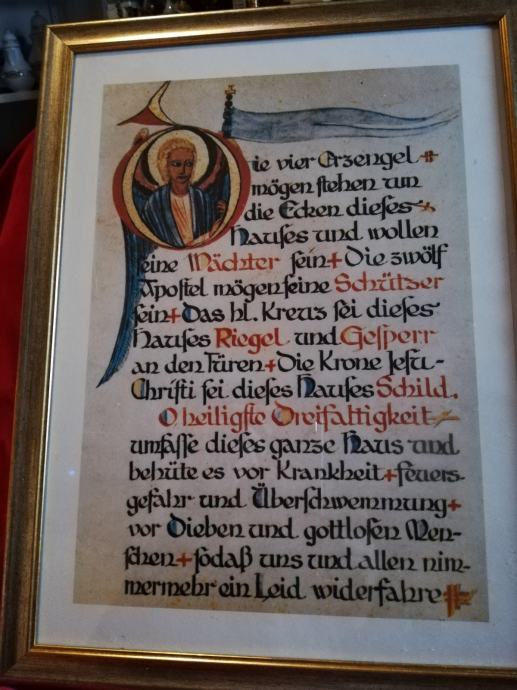 Die vier Erzengel +
mögen stehen um
die Ecken dieses
Hauses und wollen
seine Wächter sein + Die zwölf
Apostel mögen seine Schützer
sein + Das hl. Kreuz sei dieses
Hauses Riegel und Gesperr
an den Türen + Die Krone Jesu-
Christi sei dieses Hauses Schild.
O heiligste Dreifaltigkeit
umfasse dieses ganze Haus und
behüte es vor Krankheit + feuers-
gefahr und Überschwemmung +
vor Dieben und gottlosen Men-
schen + sodaß uns und allen nim-
mermehr ein Leid widerfahre